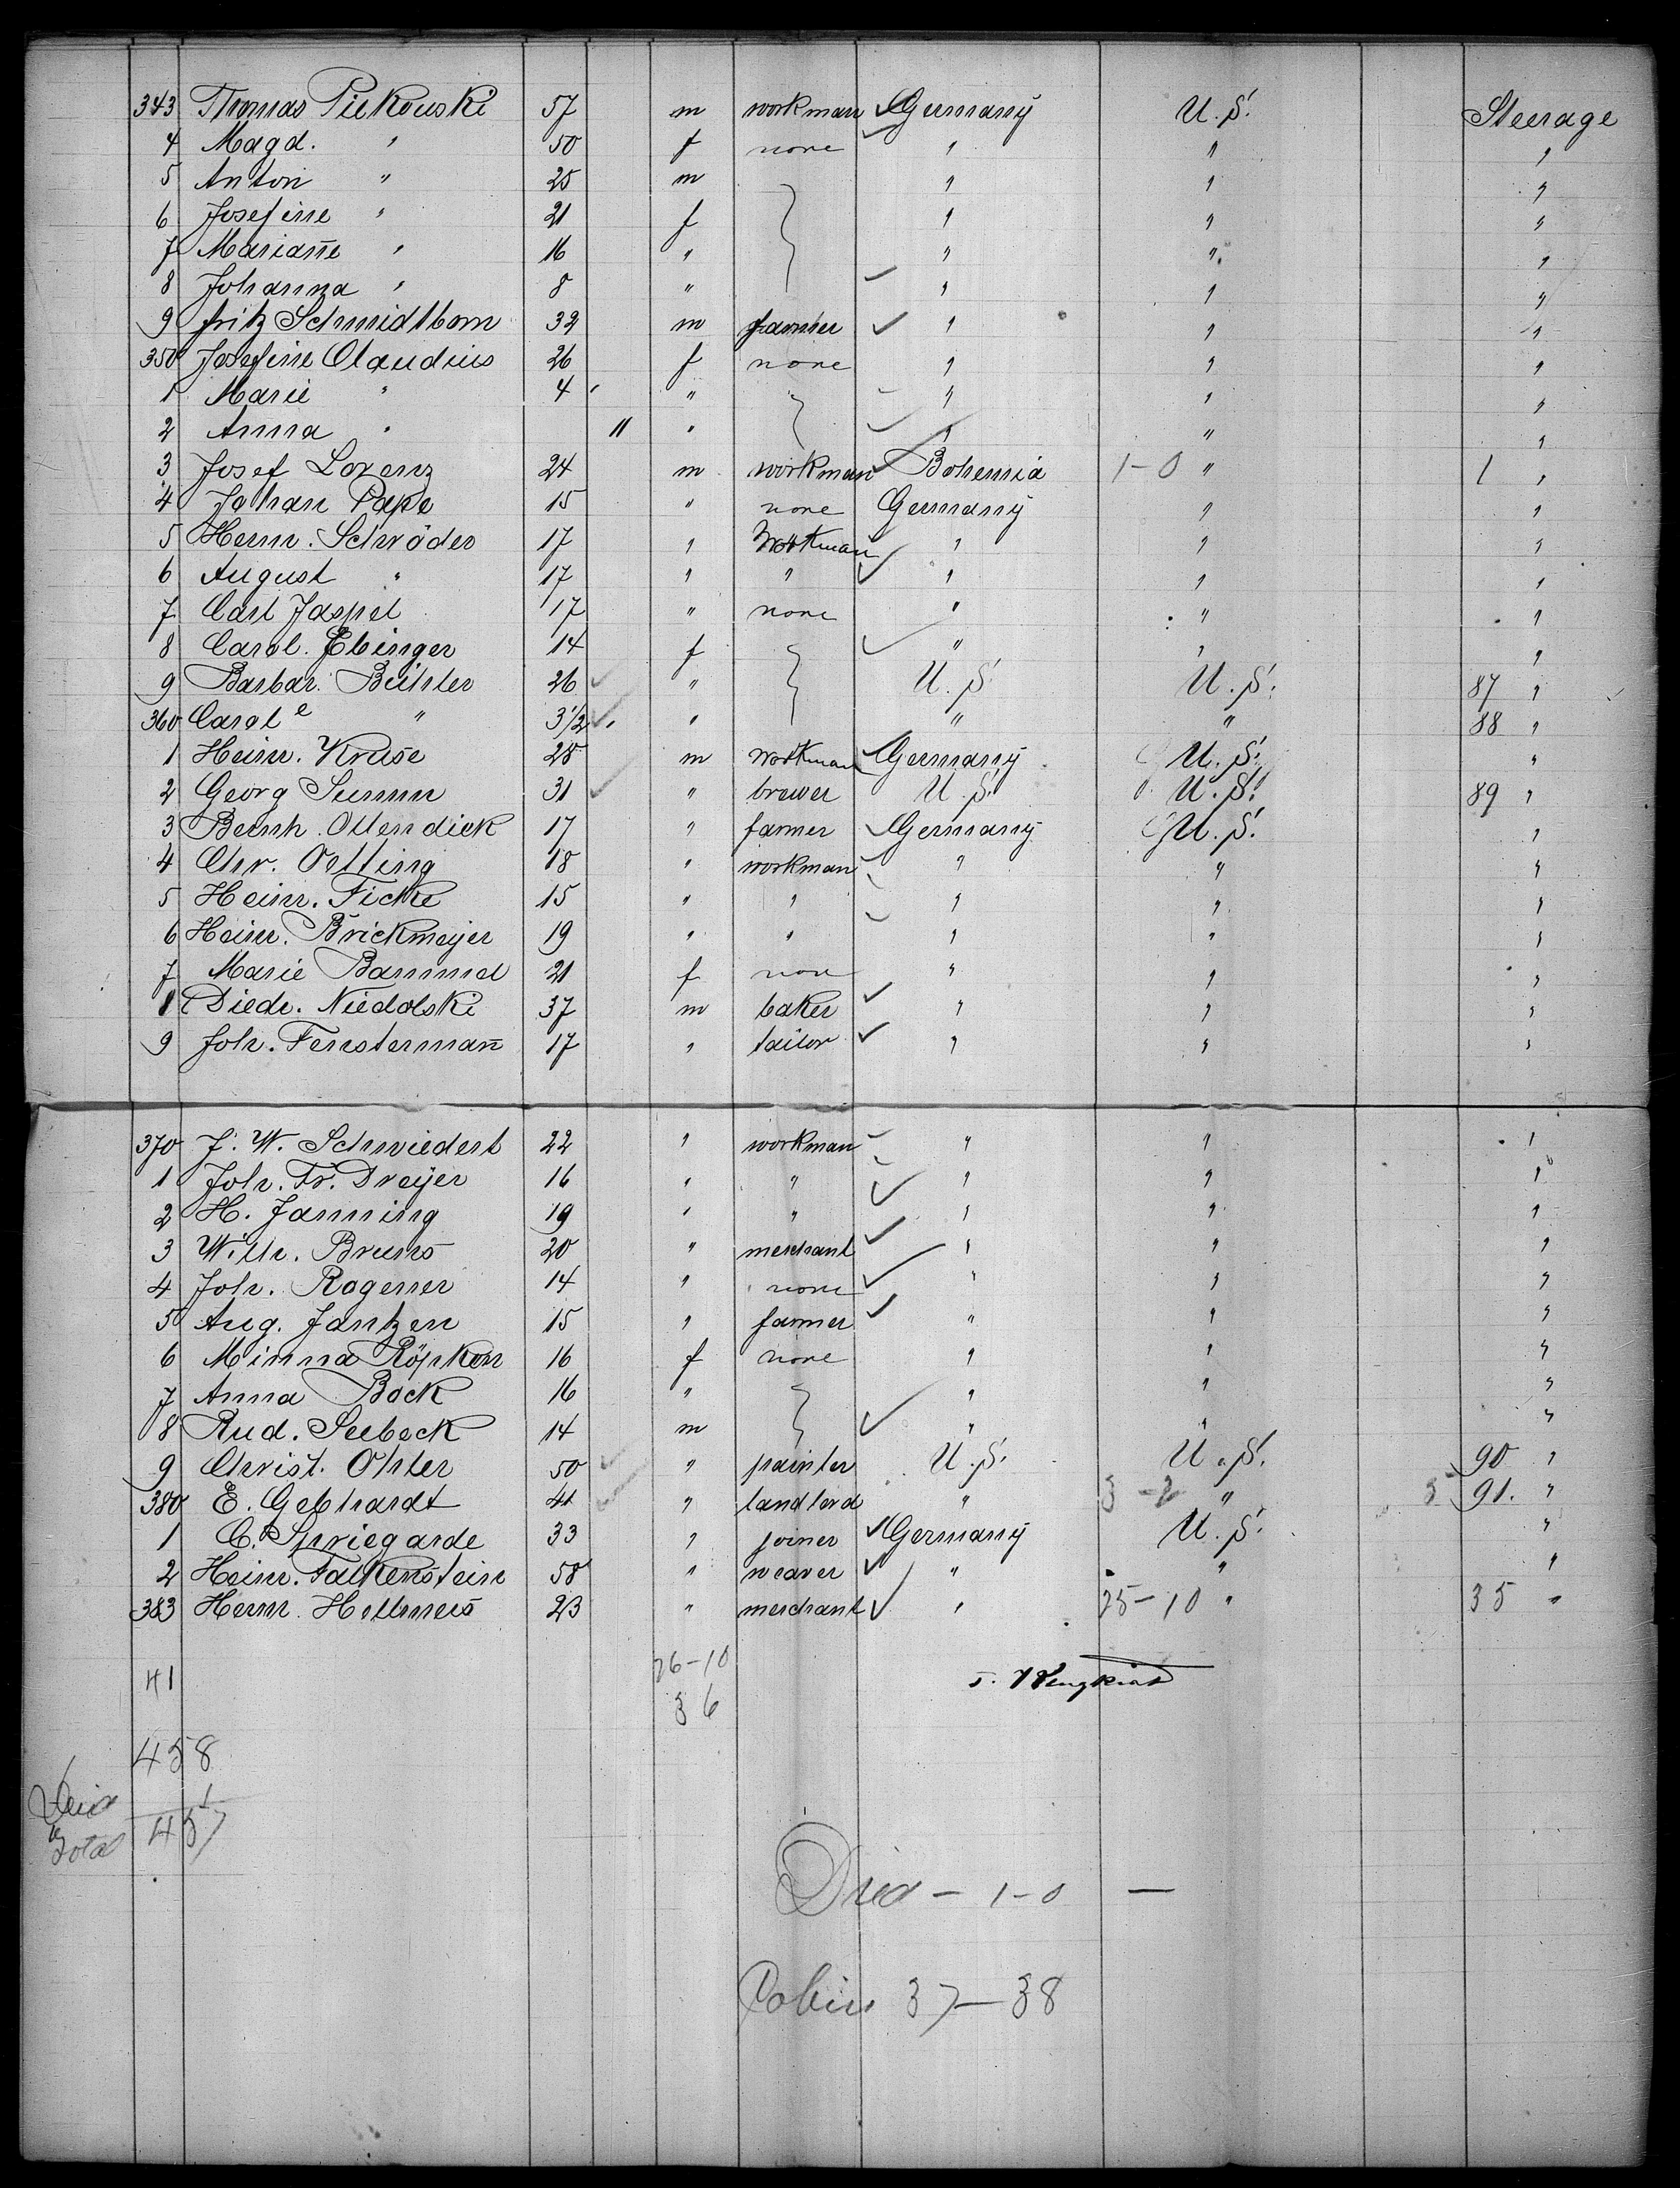 343 Thomas Piekouski 57 m workman Germany U.S. Steerage
4 Magd. " 50 f none " " "
5 Anton " 25 m " " "
6 Josefine " 21 f " " "
7 Mariañe " 16 " " " "
8 Johanna " 8 " " " "
9 Fritz Schmidtborn 32 m farmer " " "
350 Josefine Claudius 26 f none " " "
1 Marie " 4 " " " "
2 Anna " 11 " " " "
3 Josef Lorenz 24 m workman Bohemia 1-0 " 1 "
4 Johan Pape 15 " none Germany " "
5 Herm. Schröder 17 " Workman " " "
6 August " 17 " " " " "
7 Carl Jaspel 17 " none " " "
8 Carol. Ebinger 14 f " " "
9 Barbar. Bühler 26 " U.S. U.S. 87 "
360 Carol e " 3 1/2 " " " 88 "
1 Heinr. Kruse 25 m workman Germany U.S. "
2 Georg Summ 31 " brewer U.S. U.S. 89 "
3 Bernh. Ottendick 17 " farmer Germany U.S. "
4 Chr. Oetting 18 " workman " " "
5 Heinr. Ficke 15 " " " " "
6 Heinr. Brickmeijer 19 " " " " "
7 Marie Bammel 21 f non " " "
8 Diedr. Niedolski 37 m baker " " "
9 Joh. Fenstermañ 17 " tailor " " "
370 J. W. Schwiedert 22 " workman " " "
1 Joh. Fr. Dreijer 16 " " " " "
2 H. Janning 19 " " " " "
3 Wilh. Bruns 20 " merchant " " "
4 Joh. Rogener 14 " none " " "
5 Aug. Jantzen 15 " farmer " " "
6 Minna Röpken 16 f none " " "
7 Anna Bock 16 " " " "
8 Rud. Seebeck 14 m " " "
9 Christ. Ohler 50 " painter U.S. U.S. 90 "
380 E. Gebhardt 41 " landlord " 3-2 " 5 91. "
1 C. Spriegarde 33 " joiner Germany U.S. "
2 Heinr. Falkenstein 58 " weaver " " "
383 Herm. Hellmers 23 " merchant " 25-10 " 35 "
41 26-10
36
458
Died 1
Total 457
Died - 1-0 —
Cabin 37-38